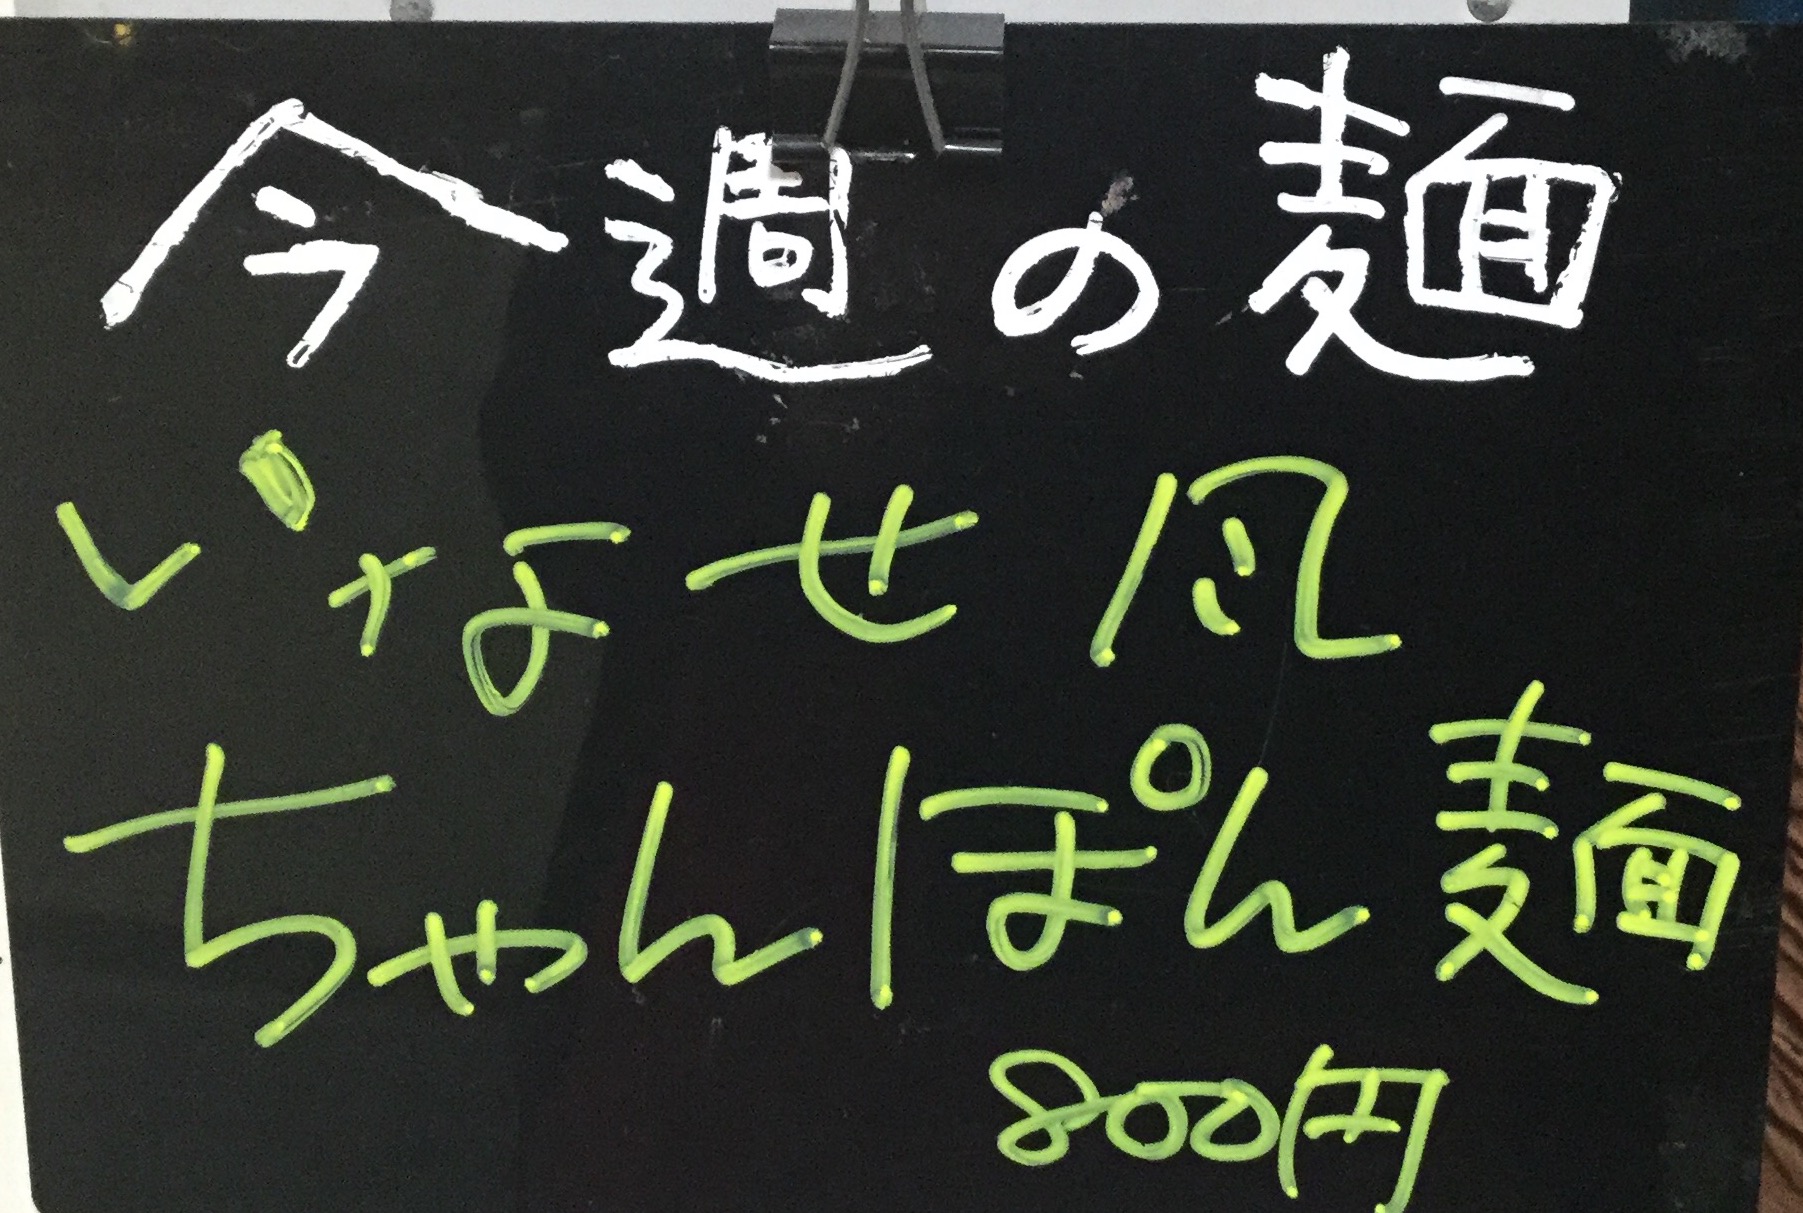 今週の麺
いなせ風
ちゃんぽん麺
800円